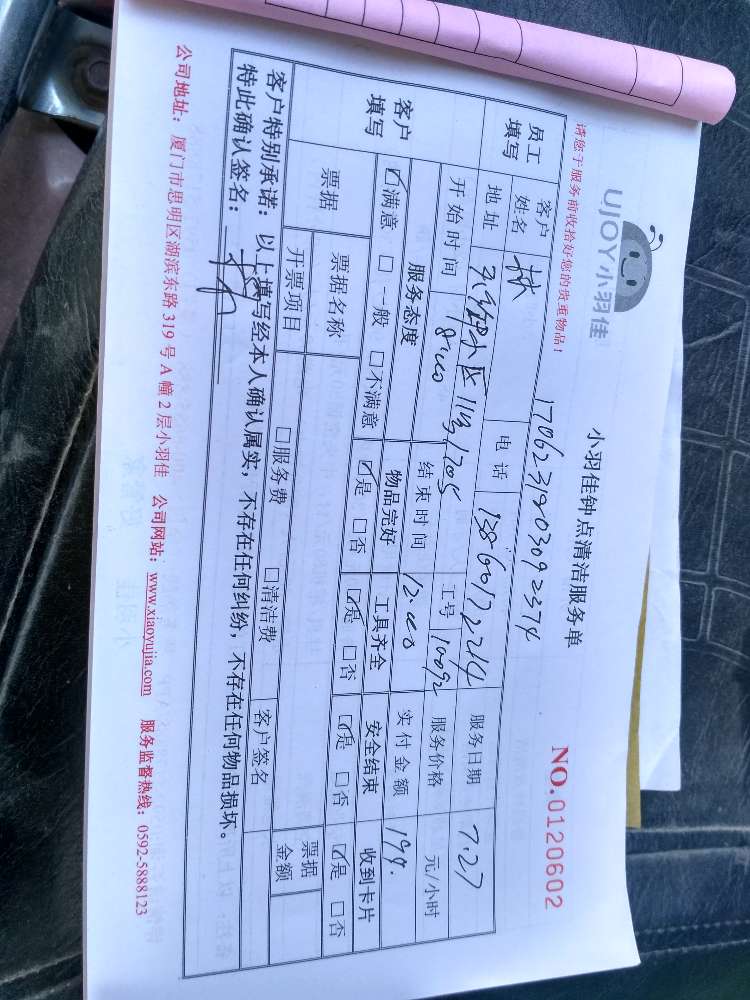 UJOY小羽佳
小羽佳钟点清洁服务单
NO.0120602
请您于服务前收拾好您的贵重物品！
员工填写 客户姓名 林 电话 13860172214 服务日期 7.27
地址 小区11号1705 工号 10092 服务价格 元/小时
开始时间 8:00 结束时间 12:00 实付金额 199.
客户填写 服务态度 物品完好 工具齐全 安全结束 收到卡片
☑满意 □一般 □不满意 ☑是 □否 ☑是 □否 ☑是 □否 ☑是 □否
票据 票据名称 票据金额
开票项目 □服务费 □清洁费 客户签名
客户特别承诺：以上填写经本人确认属实，不存在任何纠纷，不存在任何物品损坏。
特此确认签名：
公司地址：厦门市思明区湖滨东路319号A幢2层小羽佳 公司网站：www.xiaoyujia.com 服务监督热线：0592-5888123